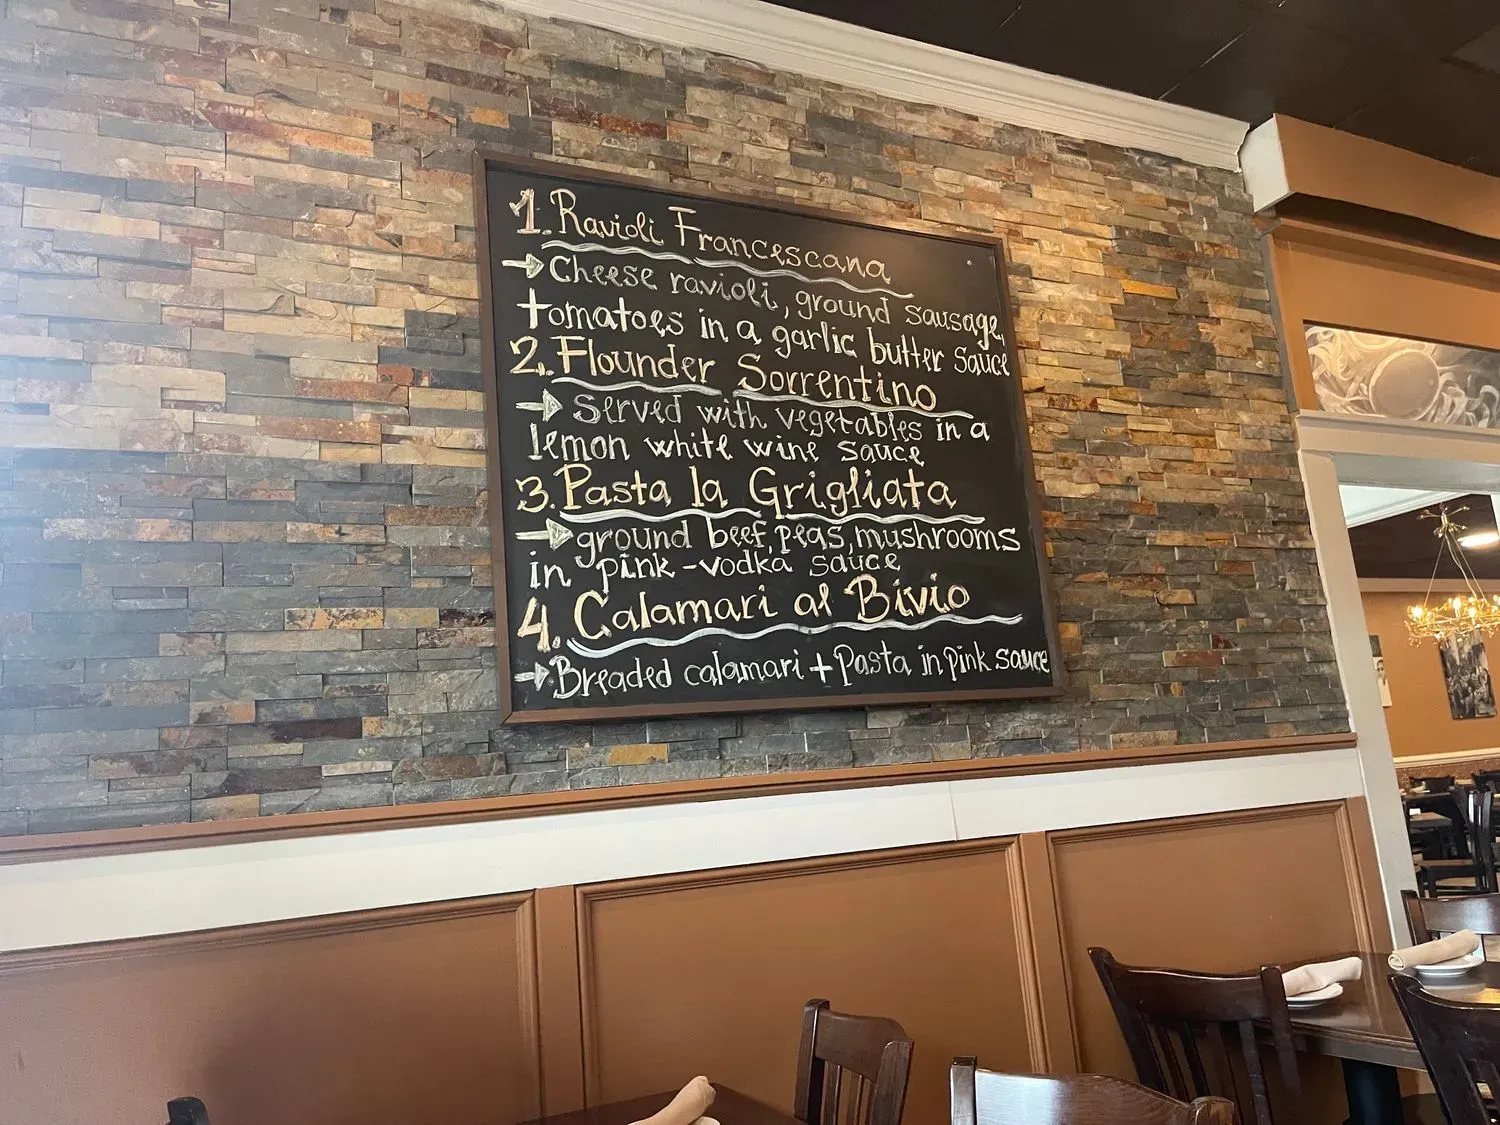 1. Ravioli Francescana
Cheese ravioli, ground sausage,
tomatoes in a garlic butter sauce
2. Flounder Sorrentino
served with vegetables in a
lemon white wine sauce
3. Pasta la Grigliata
ground beef, peas, mushrooms
in pink-vodka sauce
4. Calamari al Bivio
Breaded calamari + Pasta in pink sauce